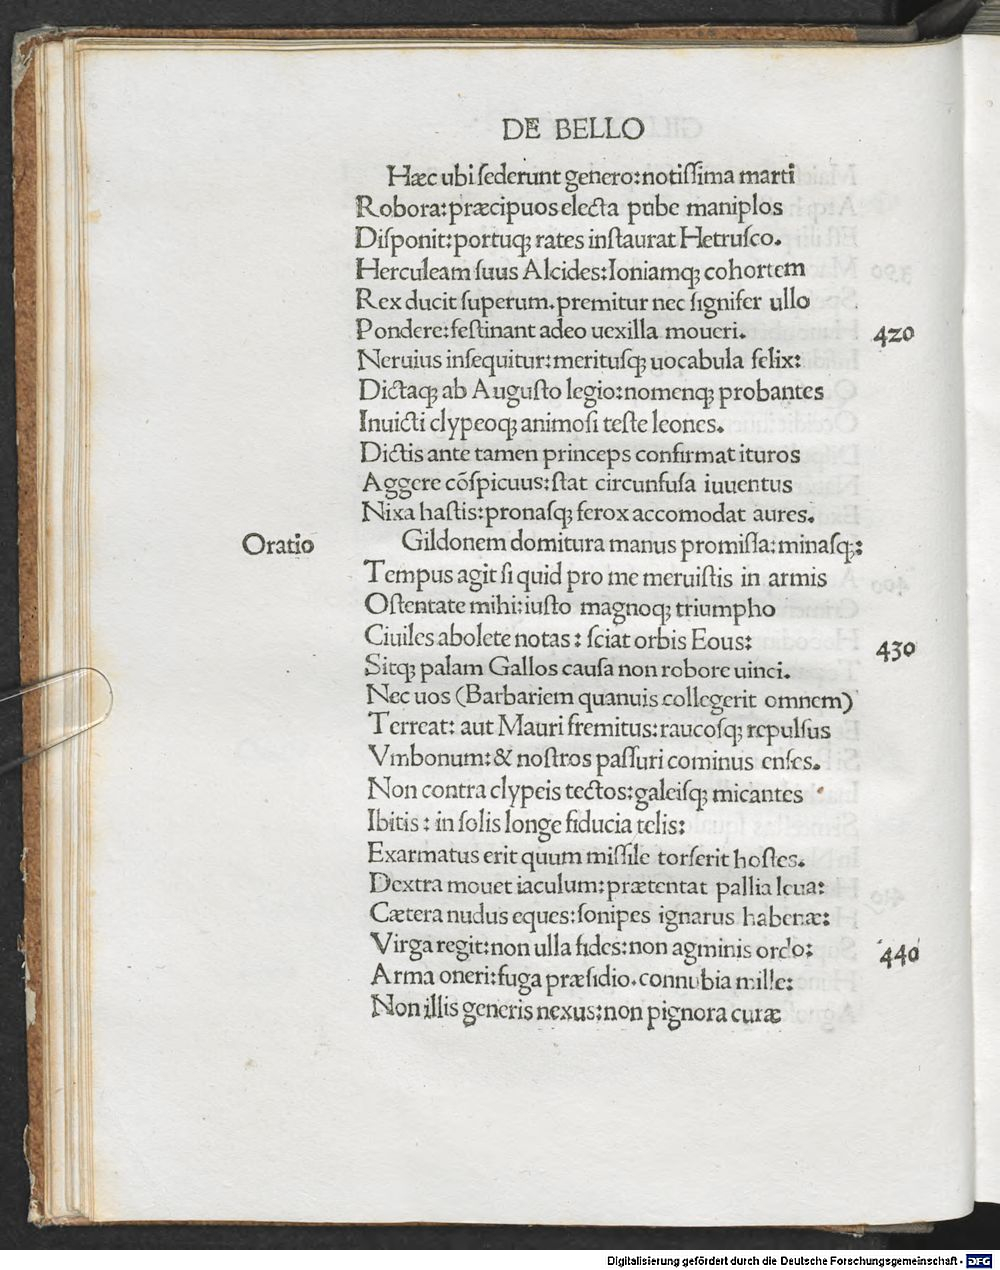 DE BELLO
Hæc ubi ſederunt genero:notiſſima marti
Robora:præcipuos electa pube maniplos
Diſponit:portuqꝫ rates inſtaurat Hetruſco.
Herculeam ſuus Alcides:Ioniamqꝫ cohortem
Rex ducit ſuperum.premitur nec ſignifer ullo
Pondere:feſtinant adeo uexilla moueri. 420
Neruius inſequitur:meritusqꝫ uocabula felix:
Dictaqꝫ ab Auguſto legio:nomenqꝫ probantes
Inuicti clypeoqꝫ animoſi teſte leones.
Dictis ante tamen princeps confirmat ituros
Aggere cõſpicuus:ſtat circunfuſa iuuentus
Nixa haſtis:pronaſqꝫ ferox accomodat aures.
Oratio Gildonem domitura manus promiſſa:minaſqꝫ:
Tempus agit ſi quid pro me meruiſtis in armis
Oſtentate mihi:iuſto magnoqꝫ triumpho
Ciuiles abolete notas: ſciat orbis Eous: 430
Sitqꝫ palam Gallos cauſa non robore uinci.
Nec uos (Barbariem quanuis collegerit omnem)
Terreat: aut Mauri fremitus:raucoſqꝫ repulſus
Vmbonum:& noſtros paſſuri cominus enſes.
Non contra clypeis tectos:galeiſqꝫ micantes
Ibitis: in ſolis longe fiducia telis:
Exarmatus erit quum miſſile torſerit hoſtes.
Dextra mouet iaculum:prætentat pallia leua:
Cætera nudus eques:ſonipes ignarus habenæ:
Virga regit:non ulla fides:non agminis ordo: 440
Arma oneri:fuga præſidio.connubia mille:
Non illis generis nexus:non pignora curæ
Digitalisierung gefördert durch die Deutsche Forschungsgemeinschaft - DFG